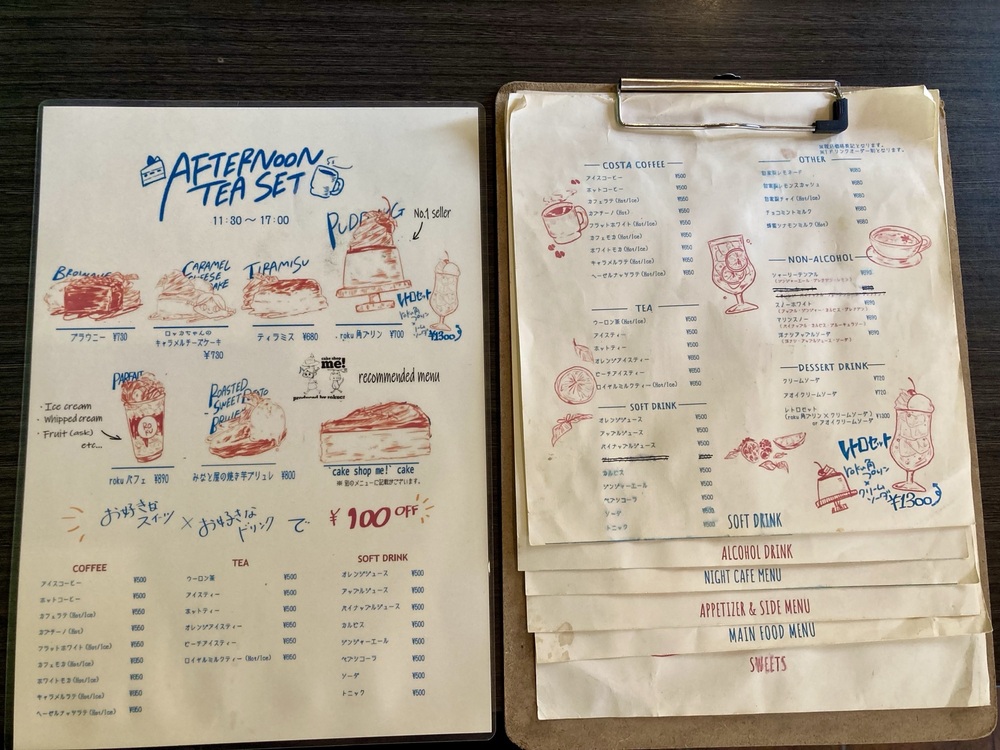 AFTERNOON
TEA SET
11:30〜17:00
PUDDING
No.1 seller
BROWNIE
CARAMEL
CHEESE
CAKE
TIRAMISU
レトロセット
¥1300
ブラウニー ¥730
ロッキちゃんの
キャラメルチーズケーキ
¥730
ティラミス ¥680
roku角プリン ¥700
PARFAIT
・Ice cream
・Whipped cream
・Fruit (ask)
etc...
ROASTED
SWEET POTATO
BRULEE
cake shop
me!
recommended menu
roku パフェ ¥890
みなと屋の焼き芋ブリュレ ¥800
"cake shop me!" cake
※ 別のメニューに記載がございます。
お好きな
スイーツ × お好きな
ドリンク で ¥100 OFF
COFFEE
アイスコーヒー ¥500
ホットコーヒー ¥500
カフェラテ (Hot/Ice) ¥550
カプチーノ (Hot) ¥550
フラットホワイト (Hot/Ice) ¥550
カフェモカ (Hot/Ice) ¥650
ホワイトモカ (Hot/Ice) ¥650
キャラメルラテ (Hot/Ice) ¥650
ヘーゼルナッツラテ (Hot/Ice) ¥650
TEA
ウーロン茶 ¥500
アイスティー ¥500
ホットティー ¥500
オレンジアイスティー ¥650
ピーチアイスティー ¥650
ロイヤルミルクティー (Hot/Ice) ¥650
SOFT DRINK
オレンジジュース ¥500
アップルジュース ¥500
パイナップルジュース ¥500
カルピス ¥500
ジンジャーエール ¥500
ペプシコーラ ¥500
ソーダ ¥500
トニック ¥500
COSTA COFFEE
アイスコーヒー ¥500
ホットコーヒー ¥500
カフェラテ (Hot/Ice) ¥550
カプチーノ (Hot) ¥550
フラットホワイト (Hot/Ice) ¥550
カフェモカ (Hot/Ice) ¥650
ホワイトモカ (Hot/Ice) ¥650
キャラメルラテ (Hot/Ice) ¥650
ヘーゼルナッツラテ (Hot/Ice) ¥650
TEA
ウーロン茶 (Hot/Ice) ¥500
アイスティー ¥500
ホットティー ¥500
オレンジアイスティー ¥650
ピーチアイスティー ¥650
ロイヤルミルクティー (Hot/Ice) ¥650
SOFT DRINK
オレンジジュース ¥500
アップルジュース ¥500
パイナップルジュース ¥500
カルピス ¥500
ジンジャーエール ¥500
ペプシコーラ ¥500
ソーダ ¥500
トニック ¥500
OTHER
自家製レモネード
自家製レモンスカッシュ
自家製チャイ (Hot/Ice)
チョコミントミルク
蜂蜜シナモンミルク (Hot)
NON-ALCOHOL
シャーリーテンプル
スノーホワイト
マリンスノー
DESSERT DRINK
クリームソーダ
アオイクリームソーダ
レトロセット
(roku角プリン×クリームソーダ
or アオイクリームソーダ)
レトロセット
roku角
プリン
×
クリーム
ソーダ
¥1300
SOFT DRINK
ALCOHOL DRINK
NIGHT CAFE MENU
APPETIZER & SIDE MENU
MAIN FOOD MENU
SWEETS